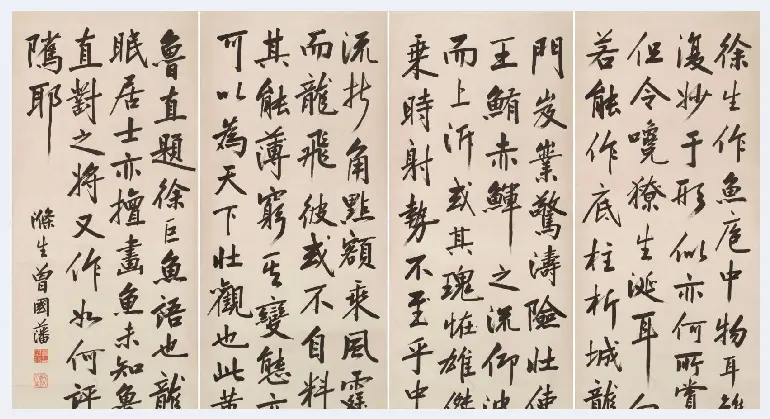 徐生作魚庖中物耳雖
復妙于形似亦何所賞
但令嚵獠生涎耳向
若能作底柱析城龍
門岌嶪驚濤險壯使
王鮪赤鱓之流仰波
而上泝或其瑰怪雄傑
乘時射勢不至乎中
流折角點額乘風霆
而龍飛彼或不自料
其能薄窮其變態亦
可以為天下壯觀也此黃
魯直題徐巨魚語也龍
眠居士亦擅畫魚未知魯
直對之將又作如何評
隲耶
滌生曾國藩